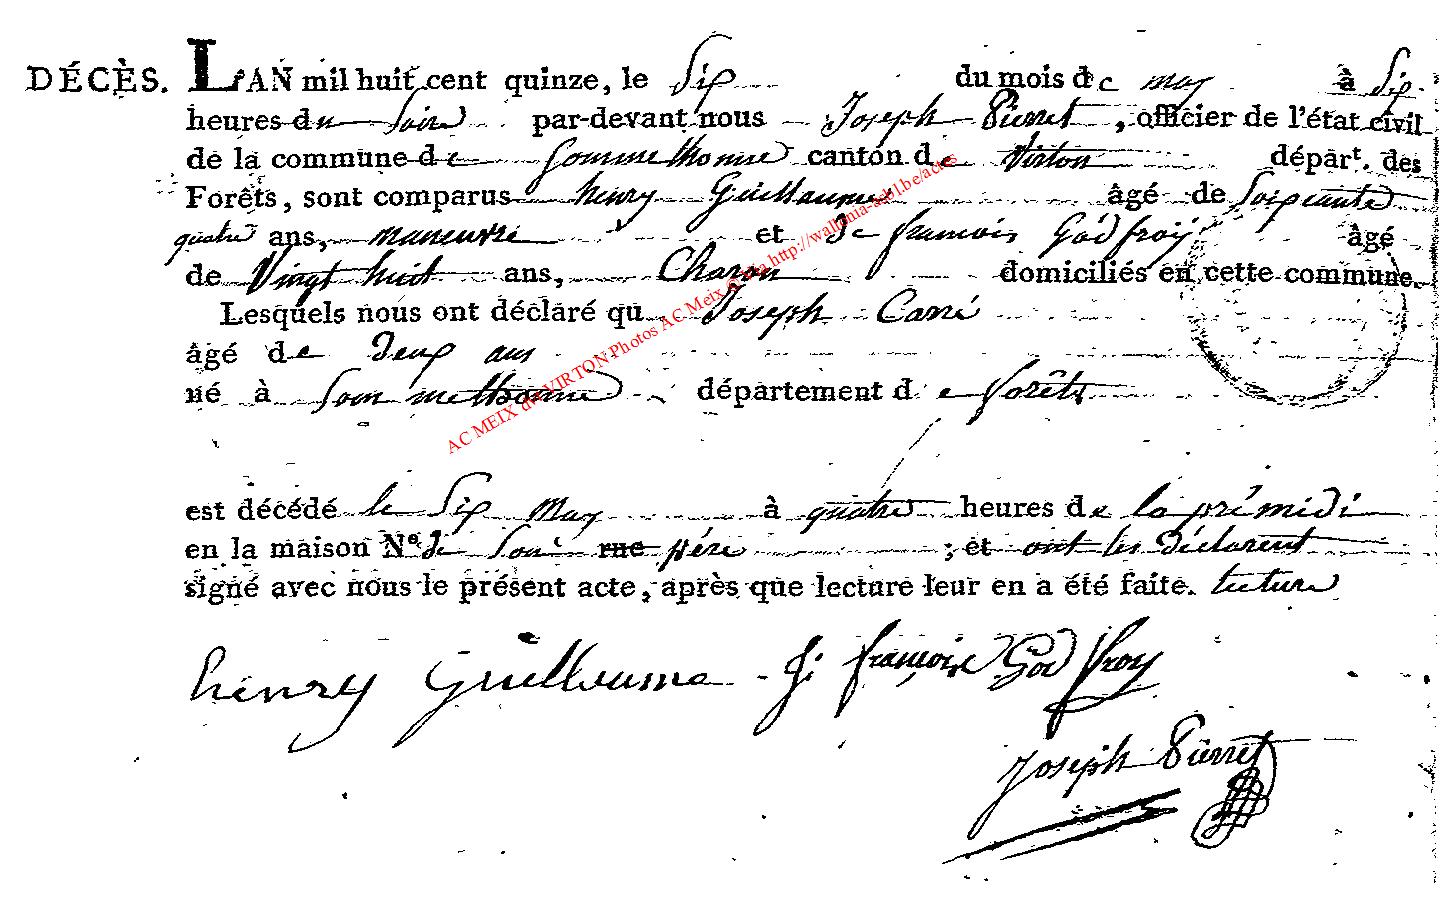 DÉCÈS. L'AN mil huit cent quinze, le Six du mois de may à Six
heures du Soir par-devant nous Joseph Pierret, officier de l'état civil
de la commune de Sommethonne canton de Virton départ. des
Forêts, sont comparus henry Guillaume âgé de Soixante
quatre ans, maneuvre et de francois Godfroy âgé
de Vingt huit ans, Charon domiciliés en cette commune.
Lesquels nous ont déclaré qu Joseph Carré
âgé de deux ans
né à Sommethonne département de forêts
est décédé le Six May à quatre heures de la prémidi
en la maison Nº de Son rue pére ; et ont les déclarent
signé avec nous le présent acte, après que lecture leur en a été faite. lecture
henry Guillaume J: françois Godfroy
Joseph Pierret
AC MEIX dvt VIRTON Photos AC Meix http://wallonia-asbl.be/actes